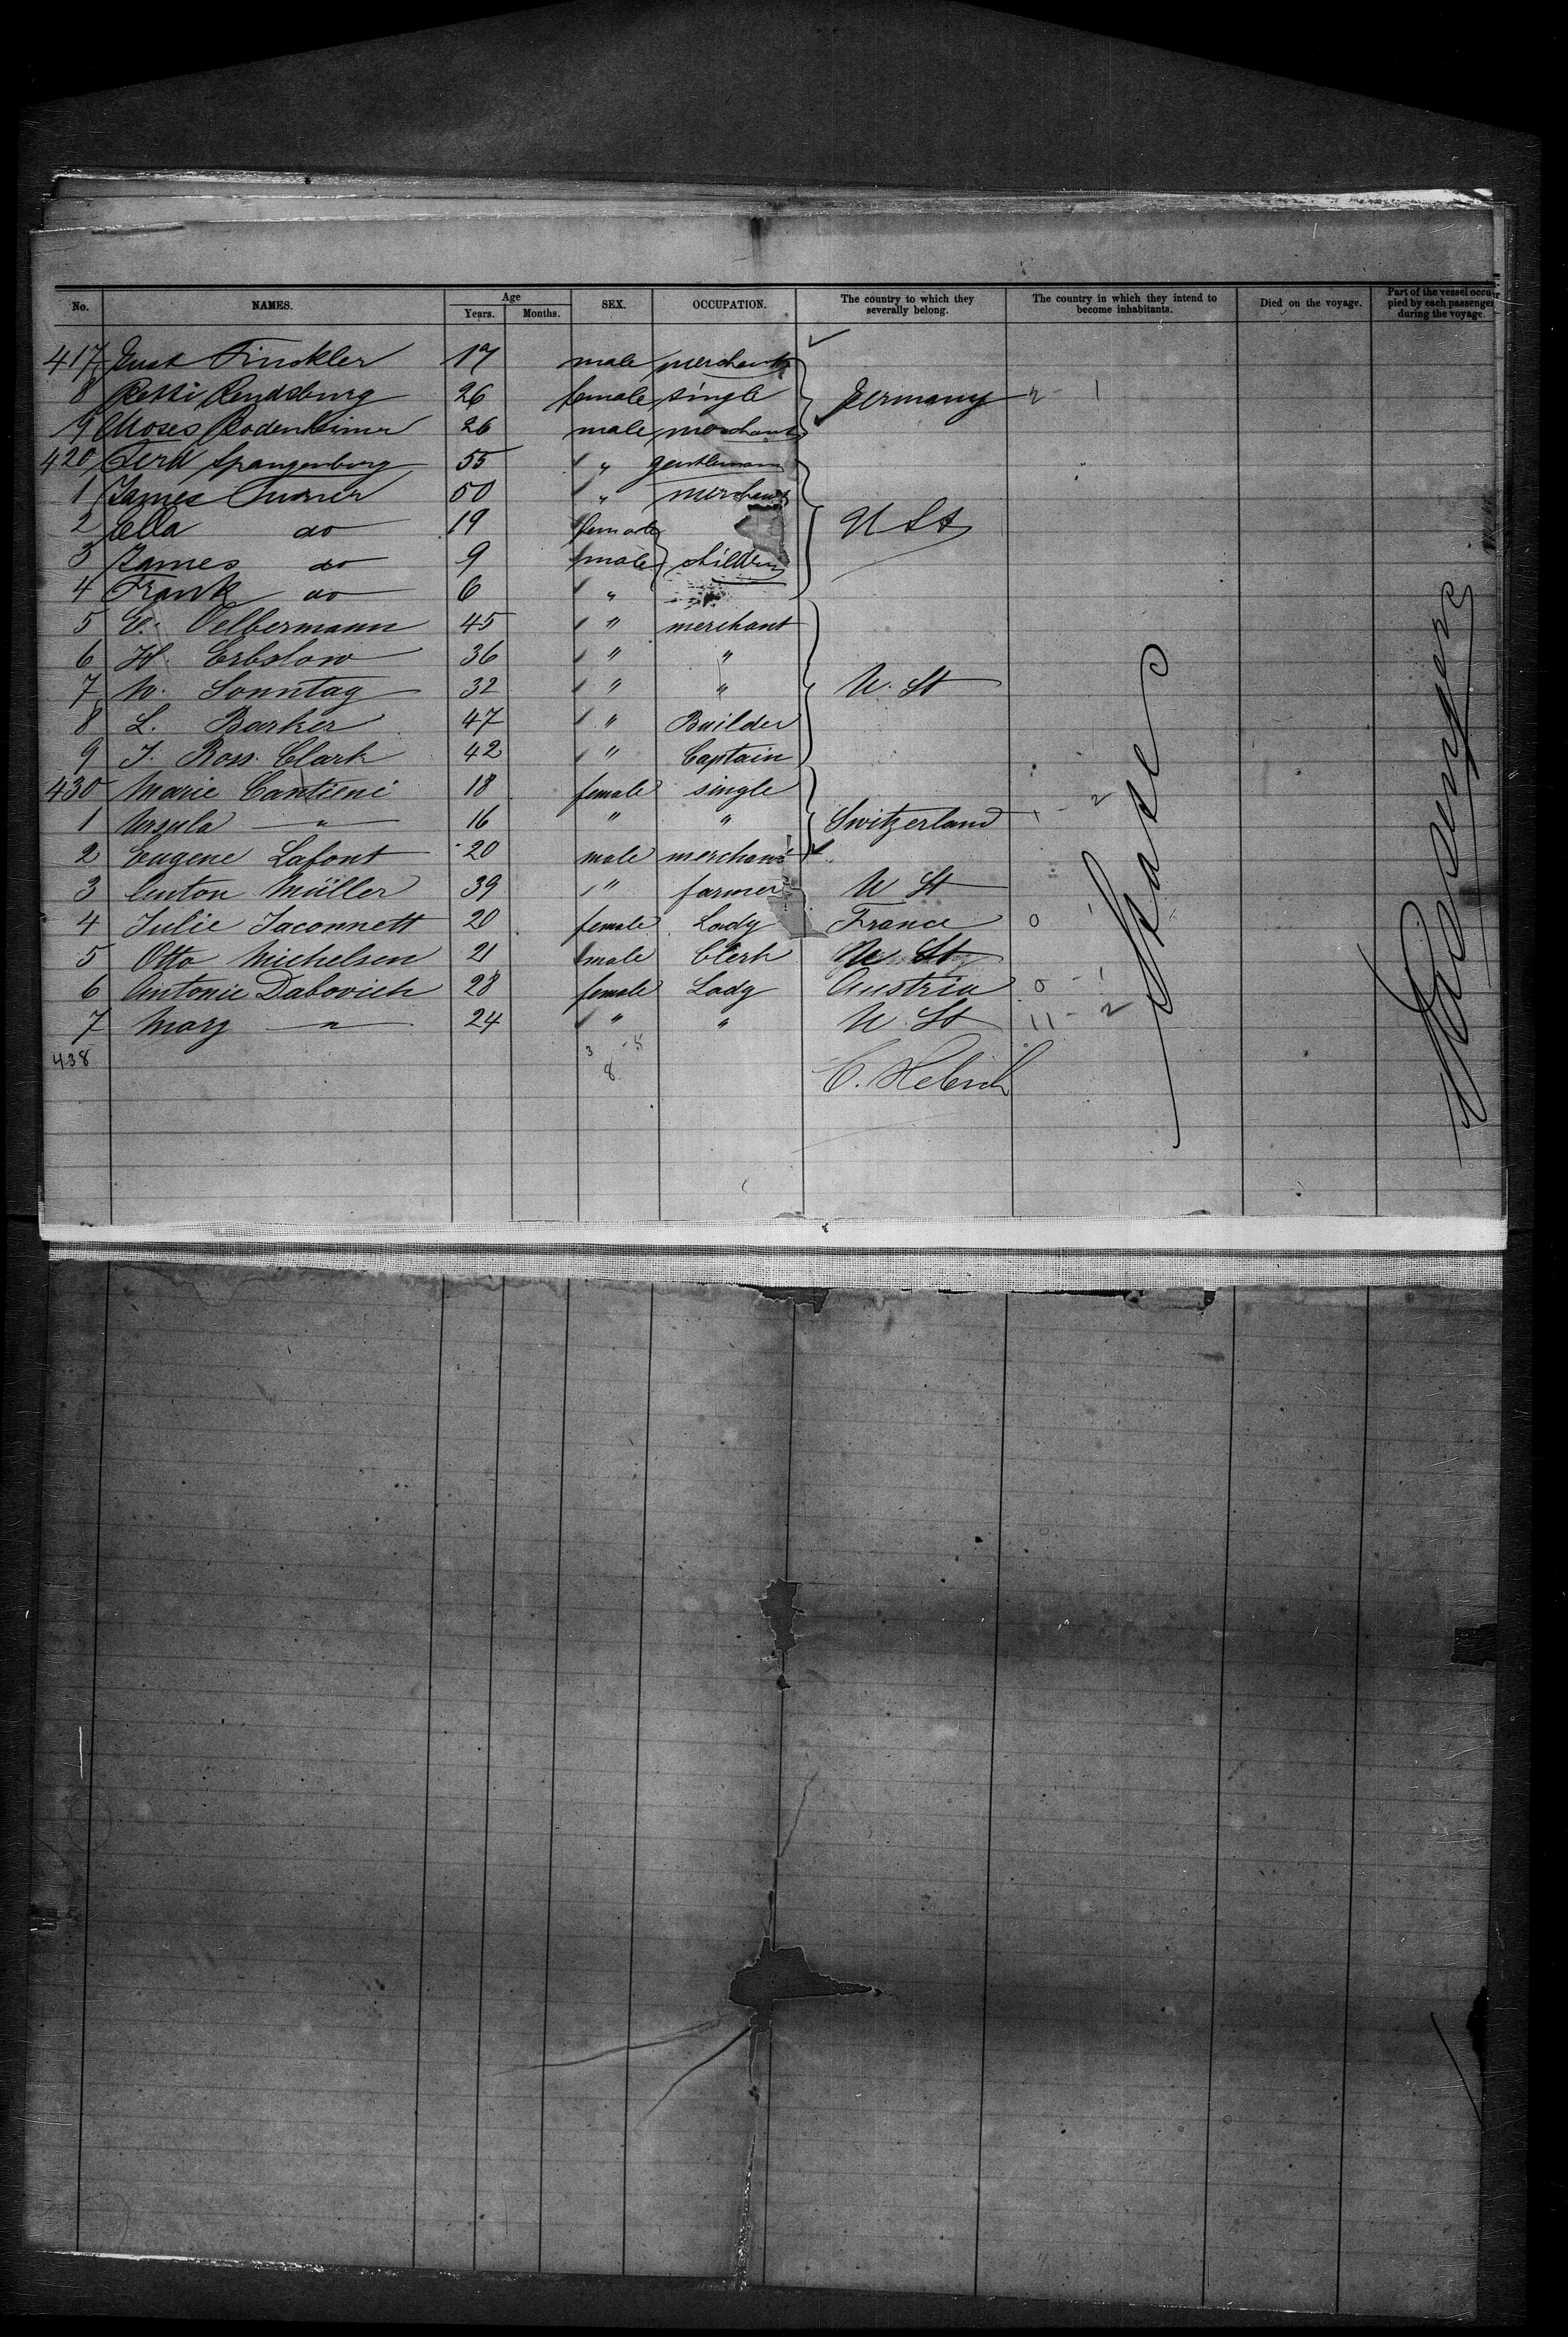 No. NAMES. Age Years. Months. SEX. OCCUPATION. The country to which they severally belong. The country in which they intend to become inhabitants. Died on the voyage. Part of the vessel occupied by each passenger during the voyage.
417 Finckler 17 male merchant
8 Rendsburg 26 female single Germany 2 1
9 Moses Bodenheimer 26 male merchant
420 Ferd Spangenburg 55 " gentleman
1 James Turner 50 " merchant
2 Ella do 19 female U St
3 James do 9 male children
4 Frank do 6 "
5 E. Oelbermann 45 " merchant
6 H. Erbslow 36 " "
7 W. Sonntag 32 " " U. St
8 L. Barker 47 " Builder
9 J. Ross. Clark 42 " Captain
430 Marie Cantieni 18 female single
1 Ursula " 16 " " Switzerland 1 - 2
2 Eugene Lafont 20 male merchant
3 Anton Müller 39 " farmer U St
4 Julie Jaconnett 20 female Lady France 0 1
5 Otto Michelsen 21 male Clerk U St
6 Antonie Dabovich 28 female Lady Austria 0 - 1
7 Mary " 24 " " U. St 11 - 2
438 3 - 5
8